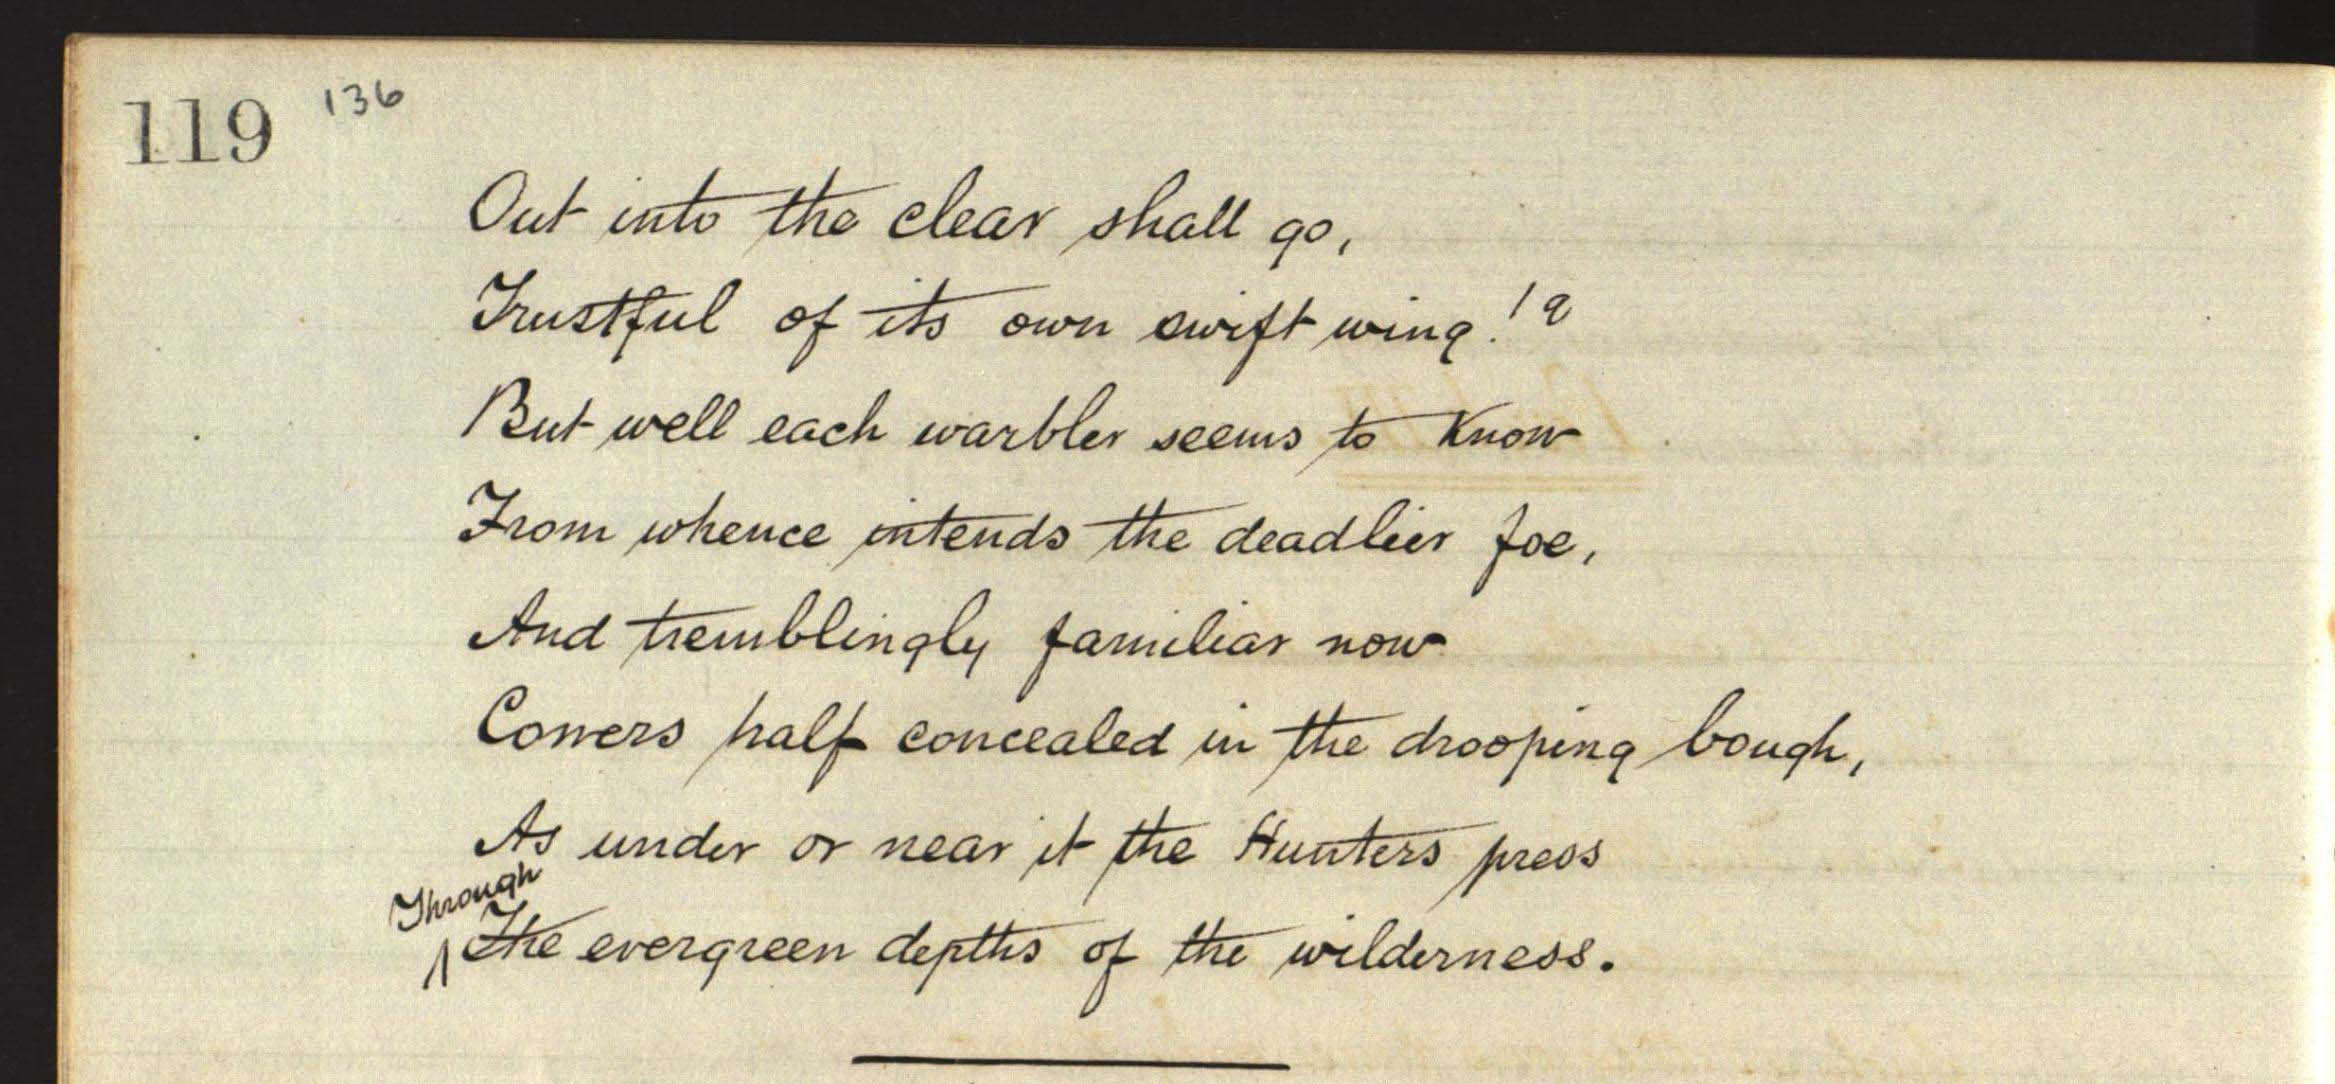 119 136
Out into the clear shall go,
Trustful of its own swift wing! a
But well each warbler seems to Know
From whence intends the deadlier foe,
And tremblingly familiar now
Cowers half concealed in the drooping bough,
As under or near it the Hunters press
Through
The evergreen depths of the wilderness.